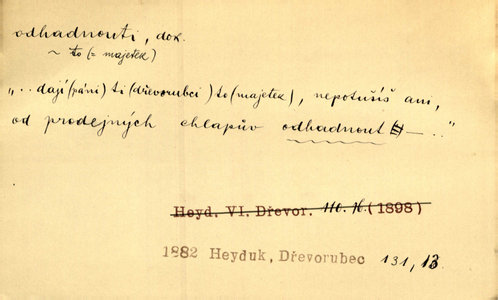 odhadnouti, dok.
~ to (= majetek)
„.. dají (páni) ti (dřevorubci) to (majetek), nepotušíš ani,
od prodejných chlapův odhadnout — .."
Heyd. VI. Dřevor. (1898)
1882 Heyduk, Dřevorubec 131, 13